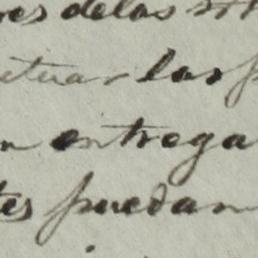 res delas
etuar las
n entrega
tes puedan